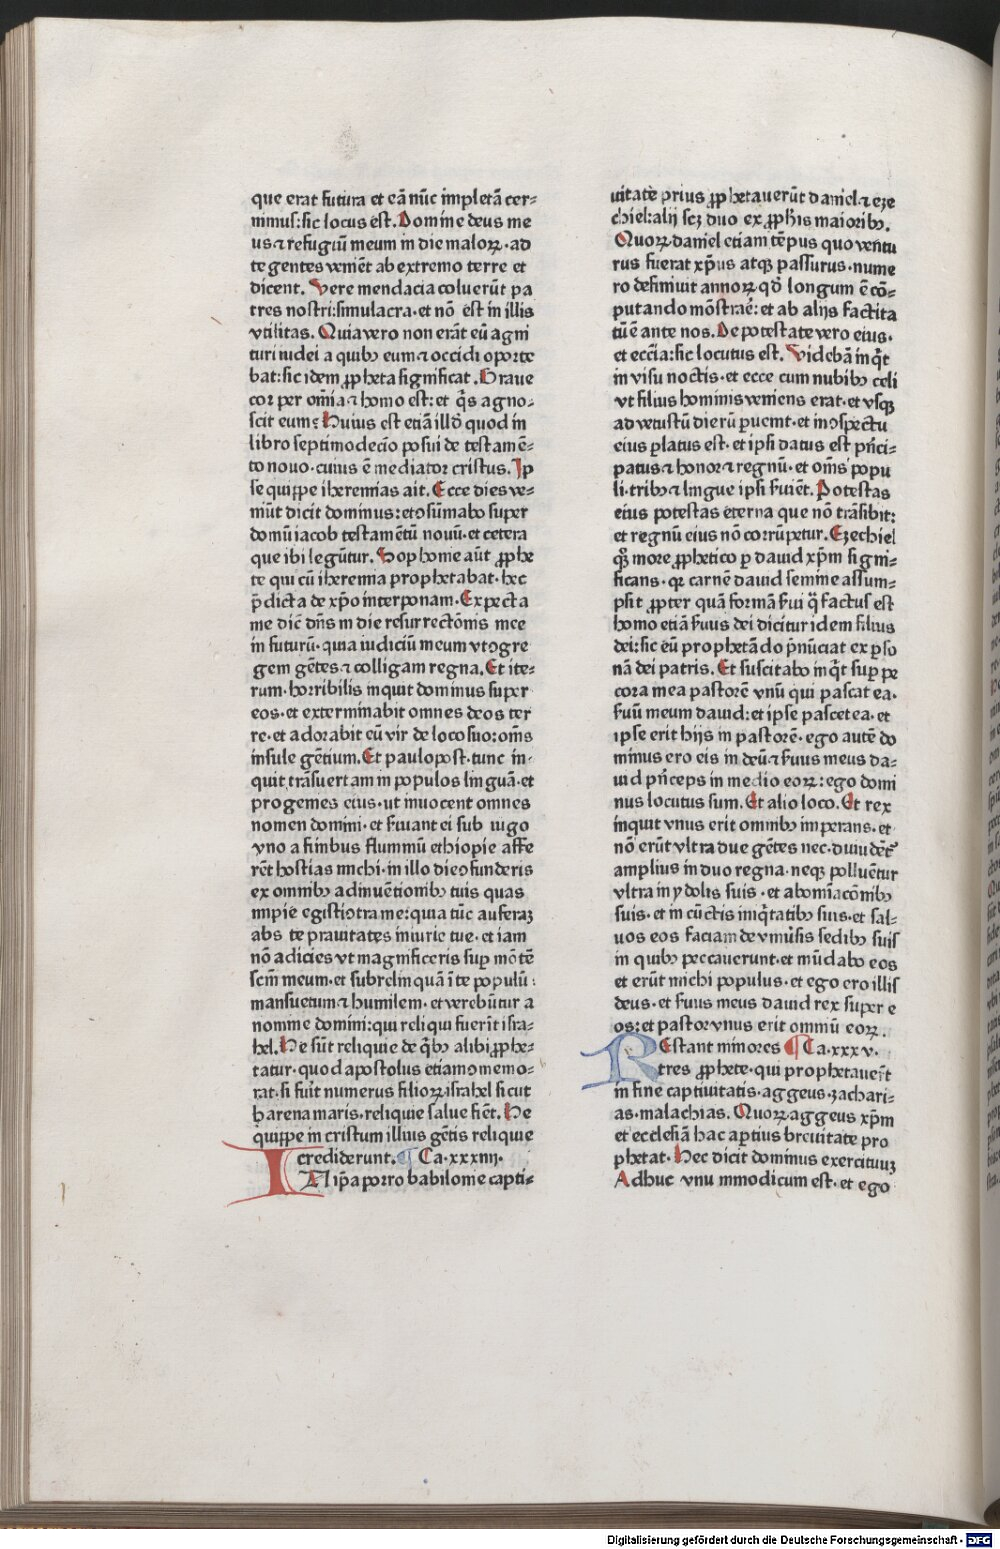 que erat futura et eã nũc impletã cer⸗
nimus: sic locus est. Domine deus me
us ⁊ refugiũ meum in die maloꝝ · ad
te gentes veniẽt ab extremo terre et
dicent. Vere mendacia coluerũt pa
tres nostri: simulacra · et nõ est in illis
vtilitas. Quia vero non erãt eũ agni
turi iudei a quibꝰ eum ⁊ occidi oporte
bat: sic idem ꝓpheta significat. Graue
cor per om̃ia ⁊ homo est: et q̃s agno⸗
scit eum? Huius est etiã illð quod in
libro septimodecĩo posui de testamẽ⸗
to nouo · cuius ẽ mediator cristus. Ip
se quippe iheremias ait. Ecce dies ve⸗
niũt dicit dominus: et ↄsũmabo super
domũ iacob testamẽtũ nouũ · et cetera
que ibi legũtur. Sophonie aũt ꝓphe
te qui cũ iheremia prophetabat · hec
p̃dicta de xp̃o interponam. Expecta
me dic̃ dñs in die resurrectõnis mee
in futurũ · quia iudiciũ meum vt ↄgre
gem gẽtes ⁊ colligam regna. Et ite⸗
rum · horribilis inquit dominus super
eos · et exterminabit omnes deos ter
re · et adorabit eũ vir de loco suo: om̃s
insule gẽtium. Et paulopost · tunc in⸗
quit trãsuertam in populos linguã · et
progenies eius · ut inuocent omnes
nomen domini · et s̃uiant ei sub iugo
vno a finibus fluminũ ethiopie affe
rẽt hostias michi · in illo die ↄfunderis
ex omnibꝰ adinuẽtionibꝰ tuis quas
impie egisti ↄtra me: quia tũc auferaʒ
abs te prauitates iniurie tue · et iam
nõ adicies vt magnificeris suꝑ mõtẽ
scm̃ meum · et subrelinquã ĩ te populũ:
mansuetum ⁊ humilem · et verebũtur a
nomine domini: qui reliqui fuerĩt isra⸗
hel. He sũt reliquie de q̃bꝰ alibi ꝓphe⸗
tatur · quod apostolus etiam ↄmemo⸗
rat · si fuĩt numerus filioꝝ israhel sicut
harena maris · reliquie salue fiẽt. He
quippe in cristum illius gẽtis reliquie
crediderunt. ¶ Ca.xxxiiij.
IN ip̃a porro babilonie capti⸗
uitate prius ꝓphetauerũt daniel ⁊ eze
chiel: alij scʒ duo ex ꝓphĩs maioribꝰ.
Quoꝝ daniel etiam tẽpus quo ventu
rus fuerat xp̃us atqꝫ passurus · nume
ro definiuit annoꝝ qð longum ẽ cõ⸗
putando mõstrar̃e: et ab alijs factita
tũ ẽ ante nos. De potestate vero eius ·
et ecc̃ia: sic locutus est. Videbã inq̃t
in visu noctis · et ecce cum nubibꝰ celi
vt filius hominis veniens erat · et vsqꝫ
ad vetustũ dierũ ꝑuenit · et in ↄspectu
eius ꝑlatus est · et ipsi datus est pñci⸗
patus ⁊ honor ⁊ regnũ · et om̃s popu
li · tribꝰ ⁊ lingue ipsi s̃uiẽt. Potestas
eius potestas eterna que nõ trãsibit:
et regnũ eius nõ corrũpetur. Ezechiel
qꝫ more ꝓphetico ꝑ dauid xp̃m signi⸗
ficans · qꝛ carnẽ dauid semine assum⸗
psit ꝓpter quã formã s̃ui q̃ factus est
homo etiã s̃uus dei dicitur idem filius
dei: sic eũ prophetãdo p̃nũciat ex ꝑso
nã dei patris. Et suscitabo inq̃t suꝑ pe
cora mea pastorẽ vnũ qui pascat ea ·
s̃uũ meum dauid: et ipse pascet ea · et
ipse erit hijs in pastorẽ · ego autẽ do
minus ero eis in deũ ⁊ s̃uus meus da⸗
uid pñceps in medio eoꝝ: ego domi
nus locutus sum. Et alio loco. Et rex
inquit vnus erit omnibꝰ imperans · et
nõ erũt vltra due gẽtes nec · diuidẽt̃
amplius in duo regna · neqꝫ polluẽtur
vltra in ydolis suis · et abomĩacõnibꝰ
suis · et in cũctis iniq̃tatibꝰ suis · et sal⸗
uos eos faciam de vniũsis sedibꝰ suis
in quibꝰ peccauerunt · et mũdabo eos
et erũt michi populus · et ego ero illis
deus · et s̃uus meus dauid rex super e
os: et pastor vnus erit omniũ eoꝝ.
REstant minores ¶ Ca.xxxv.
tres ꝓphete · qui prophetauer̃t
in fine captiuitatis · aggeus · zachari⸗
as · malachias. Quoꝝ aggeus xp̃m
et ecclesiã hac aꝑtius breuitate pro
phetat · Hec dicit dominus exercituuʒ
Adhuc vnu mmodicum est · et ego
Digitalisierung gefördert durch die Deutsche Forschungsgemeinschaft - DFG